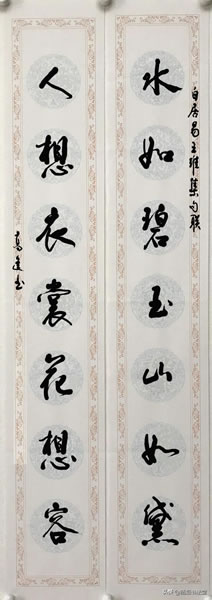 白居易王維集句联
水如碧玉山如黛
人想衣裳花想容